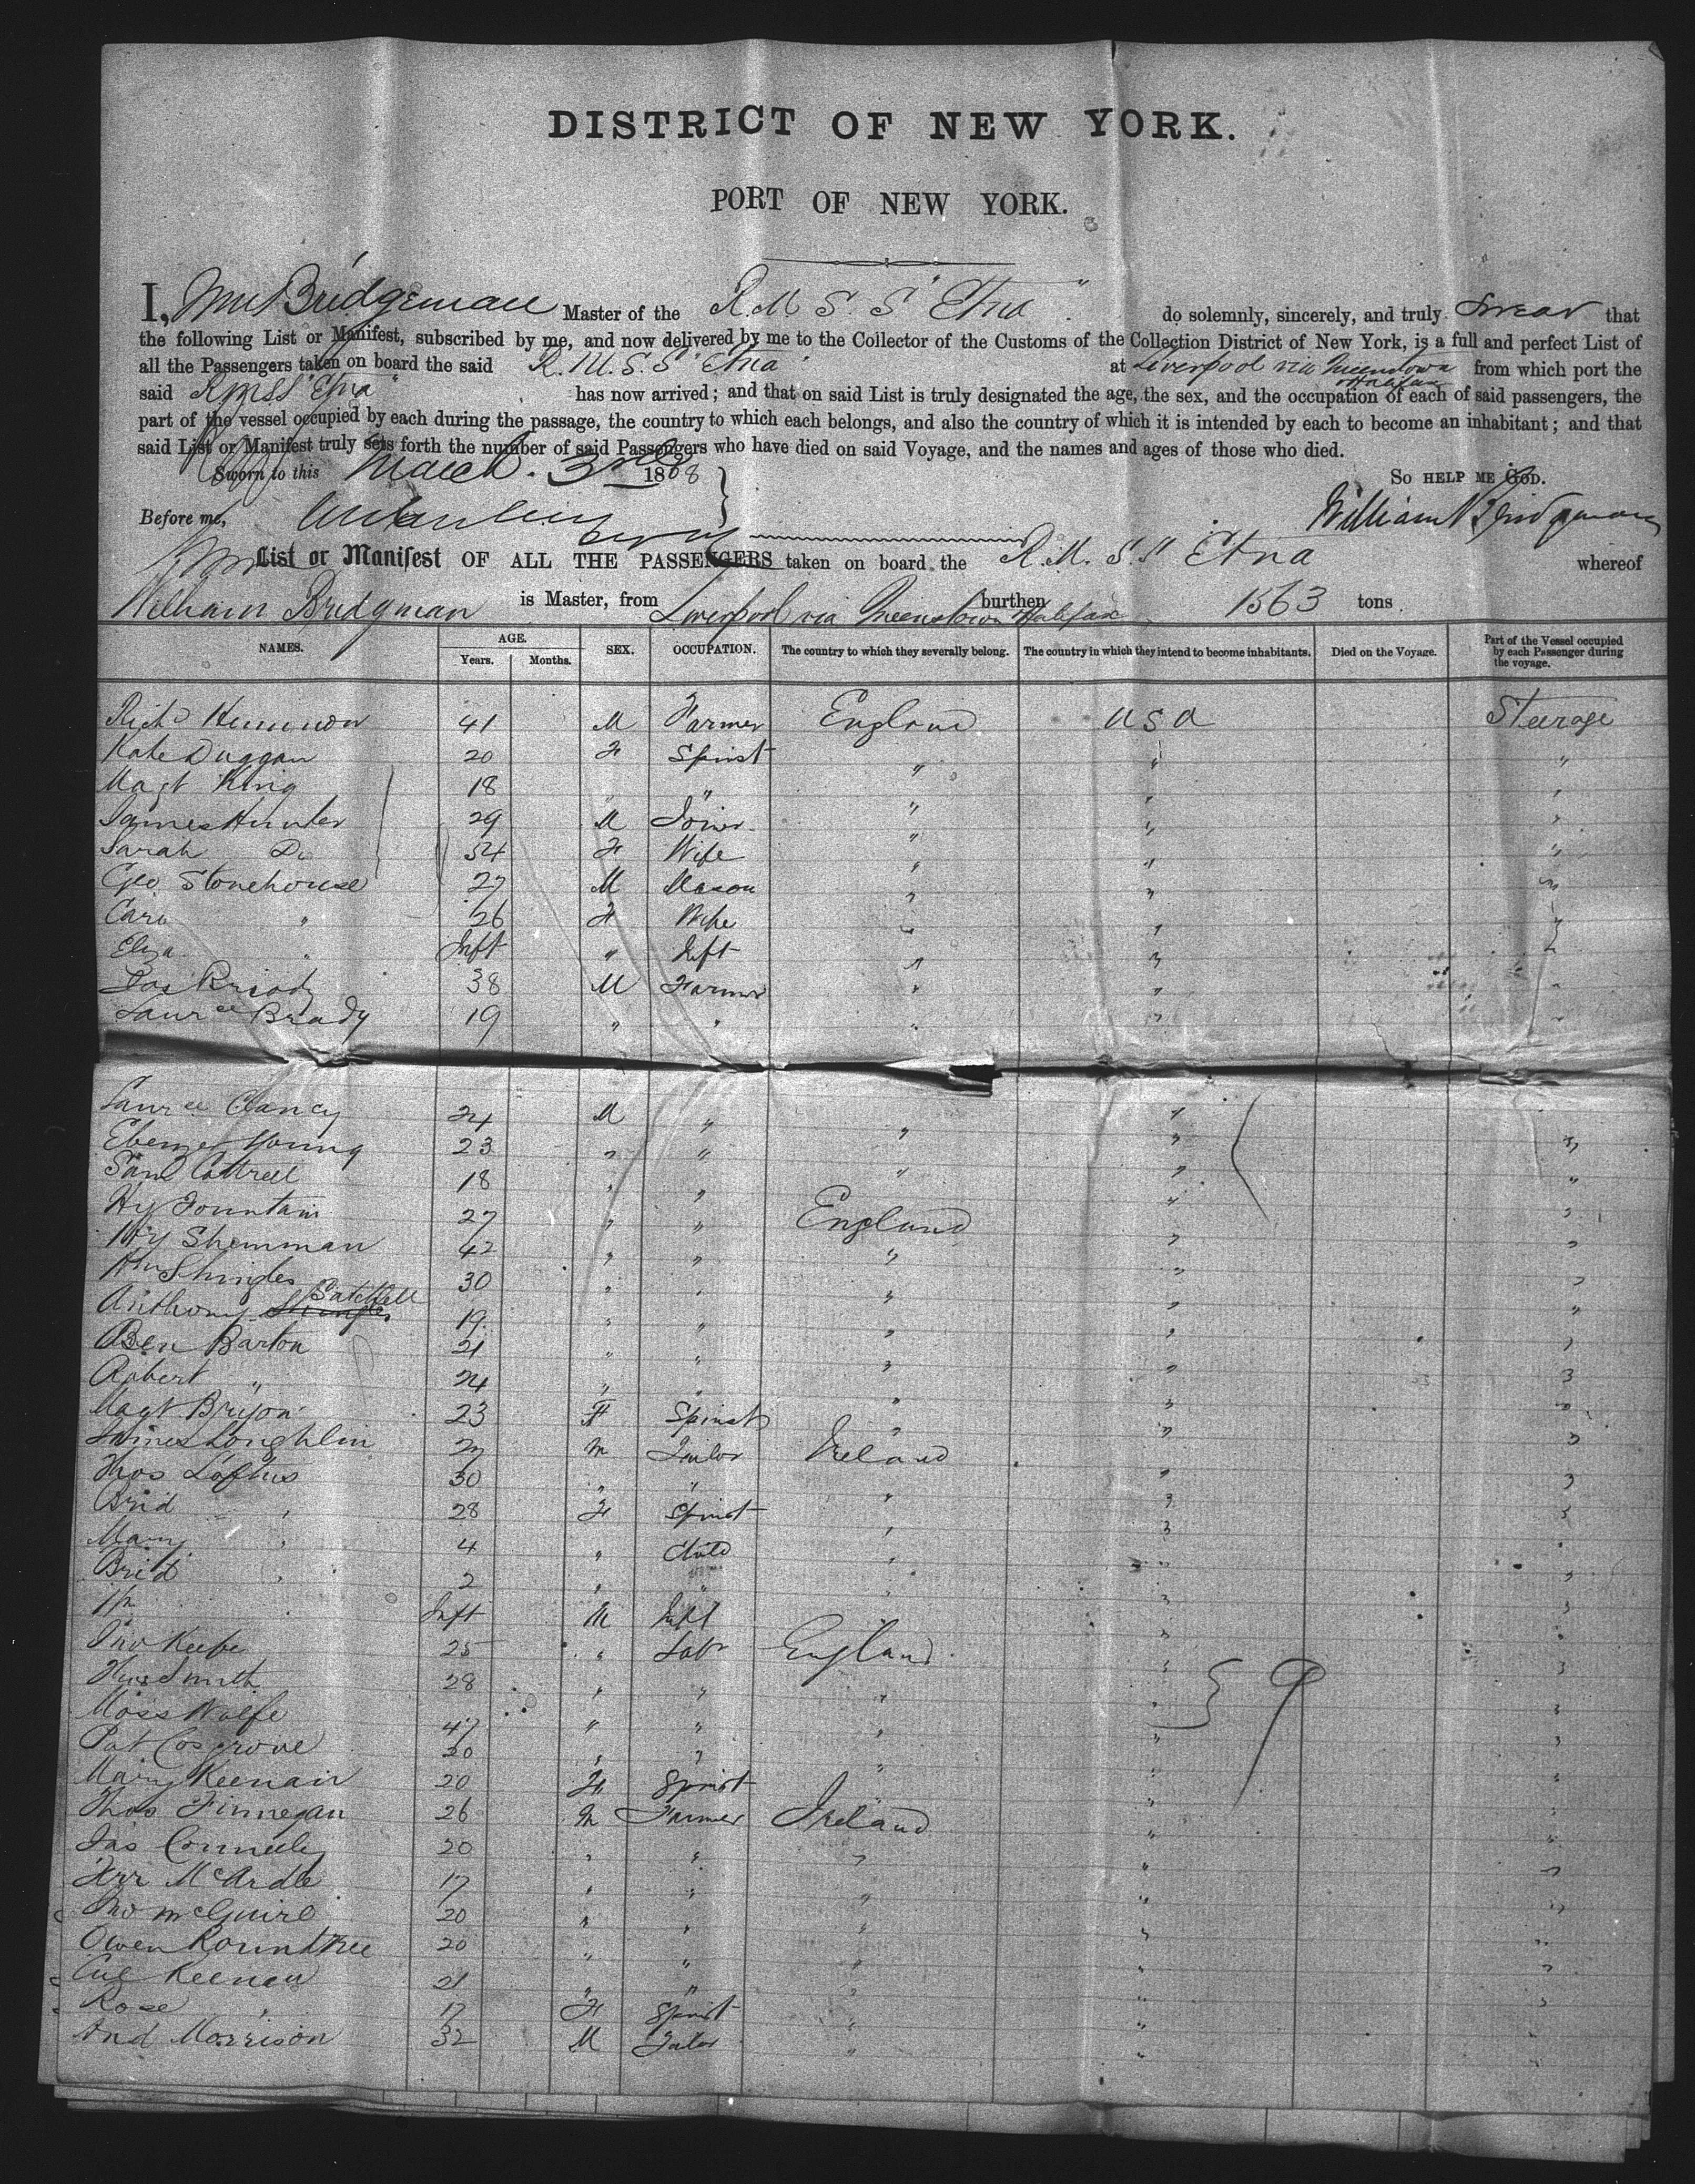 DISTRICT OF NEW YORK.
PORT OF NEW YORK.
I, Wm Bridgeman Master of the R.M S S "Etna" do solemnly, sincerely, and truly swear that
the following List or Manifest, subscribed by me, and now delivered by me to the Collector of the Customs of the Collection District of New York, is a full and perfect List of
all the Passengers taken on board the said R.M.S.S "Etna" at Liverpool via Queenstown Halifax from which port the
said RMSS "Etna" has now arrived; and that on said List is truly designated the age, the sex, and the occupation of each of said passengers, the
part of the vessel occupied by each during the passage, the country to which each belongs, and also the country of which it is intended by each to become an inhabitant; and that
said List or Manifest truly sets forth the number of said Passengers who have died on said Voyage, and the names and ages of those who died.
Sworn to this March. 3rd 1868 So HELP ME GOD.
Before me, William Bridgman
List or Manifest OF ALL THE PASSENGERS taken on board the R.M. S.S Etna whereof
William Bridgman is Master, from Liverpool via Queenstown Halifax burthen 1563 tons
NAMES. AGE. Years. Months. SEX. OCCUPATION. The country to which they severally belong. The country in which they intend to become inhabitants. Died on the Voyage. Part of the Vessel occupied by each Passenger during the voyage.
Richd 41 M Farmer England USA Steerage
Kate Duggan 20 F Spinst " " "
Magt King 18 " " " " "
James Hunter 29 M Joiner " " "
Sarah Do 54 F Wife " " "
Geo Stonehouse 27 M Mason " " "
Caro " 26 F Wife " " "
Eliza " Inft " Inft " " "
Jas Briody 38 M Farmer " " "
Laurce Brady 19 " " " " "
Laurce Clancy 24 M " " " "
Ebenzer Young 23 " " " " "
Saml Cottrell 18 " " " " "
Hy Fountain 27 " " England " "
Hy Shemman 42 " " " " "
Wm Shingles 30 " " " " "
Anthony Satchell 19 " " " " "
Ben Barton 21 " " " " "
Robert " 24 " " " " "
Magt Bryon 23 F Spinst " " "
James Loughlin 27 M Tailor Ireland " "
Thos Loftus 30 " " " " "
Brid " 28 F Spinst " " "
Mary " 4 " Child " " "
Brid " 2 " " " " "
Inft M Inft " "
Jno Keefe 25 " Labr England " "
Thos Smith 28 " " " " "
Moss Wolfe 47 " " " " "
Pat Cosgrove 20 " " " " "
Mary Keenan 20 F Spinst " "
Thos Finnegan 26 M Farmer Ireland " "
Jas Conneely 20 " " " " "
McArdle 17 " " " " "
Jno McGuire 20 " " " " "
Owen Roundtree 20 " " " " "
Keenan 21 " " " " "
Rose " 17 F Spinst " " "
And Morrison 32 M Tailor " "